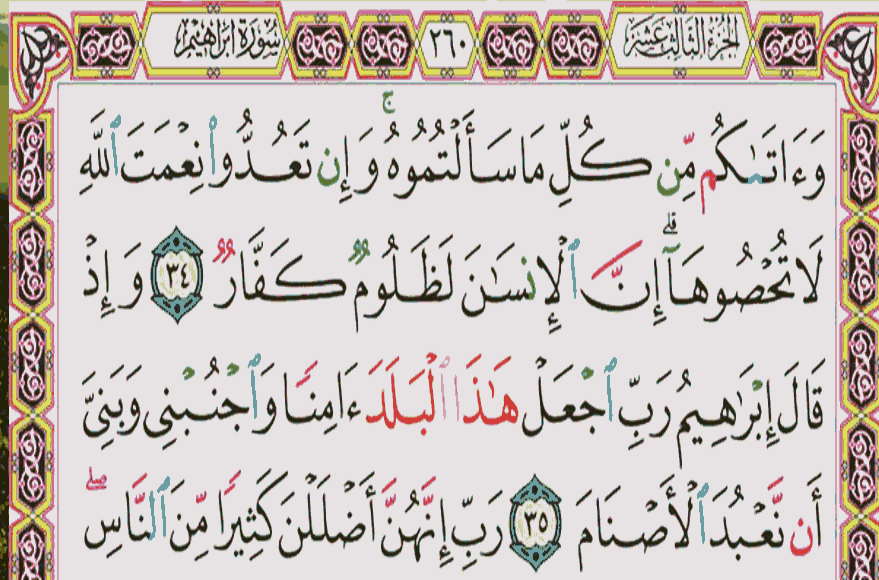 الجزء الثالث عشر ٢٦٠ سورة ابراهيم
وَءَاتَىٰكُم مِّن كُلِّ مَا سَأَلْتُمُوهُ ۚ وَإِن تَعُدُّوا۟ نِعْمَتَ ٱللَّهِ
لَا تُحْصُوهَآ ۗ إِنَّ ٱلْإِنسَـٰنَ لَظَلُومٌ كَفَّارٌ ٣٤ وَإِذْ
قَالَ إِبْرَٰهِيمُ رَبِّ ٱجْعَلْ هَـٰذَا ٱلْبَلَدَ ءَامِنًا وَٱجْنُبْنِى وَبَنِىَّ
أَن نَّعْبُدَ ٱلْأَصْنَامَ ٣٥ رَبِّ إِنَّهُنَّ أَضْلَلْنَ كَثِيرًا مِّنَ ٱلنَّاسِ ۖ